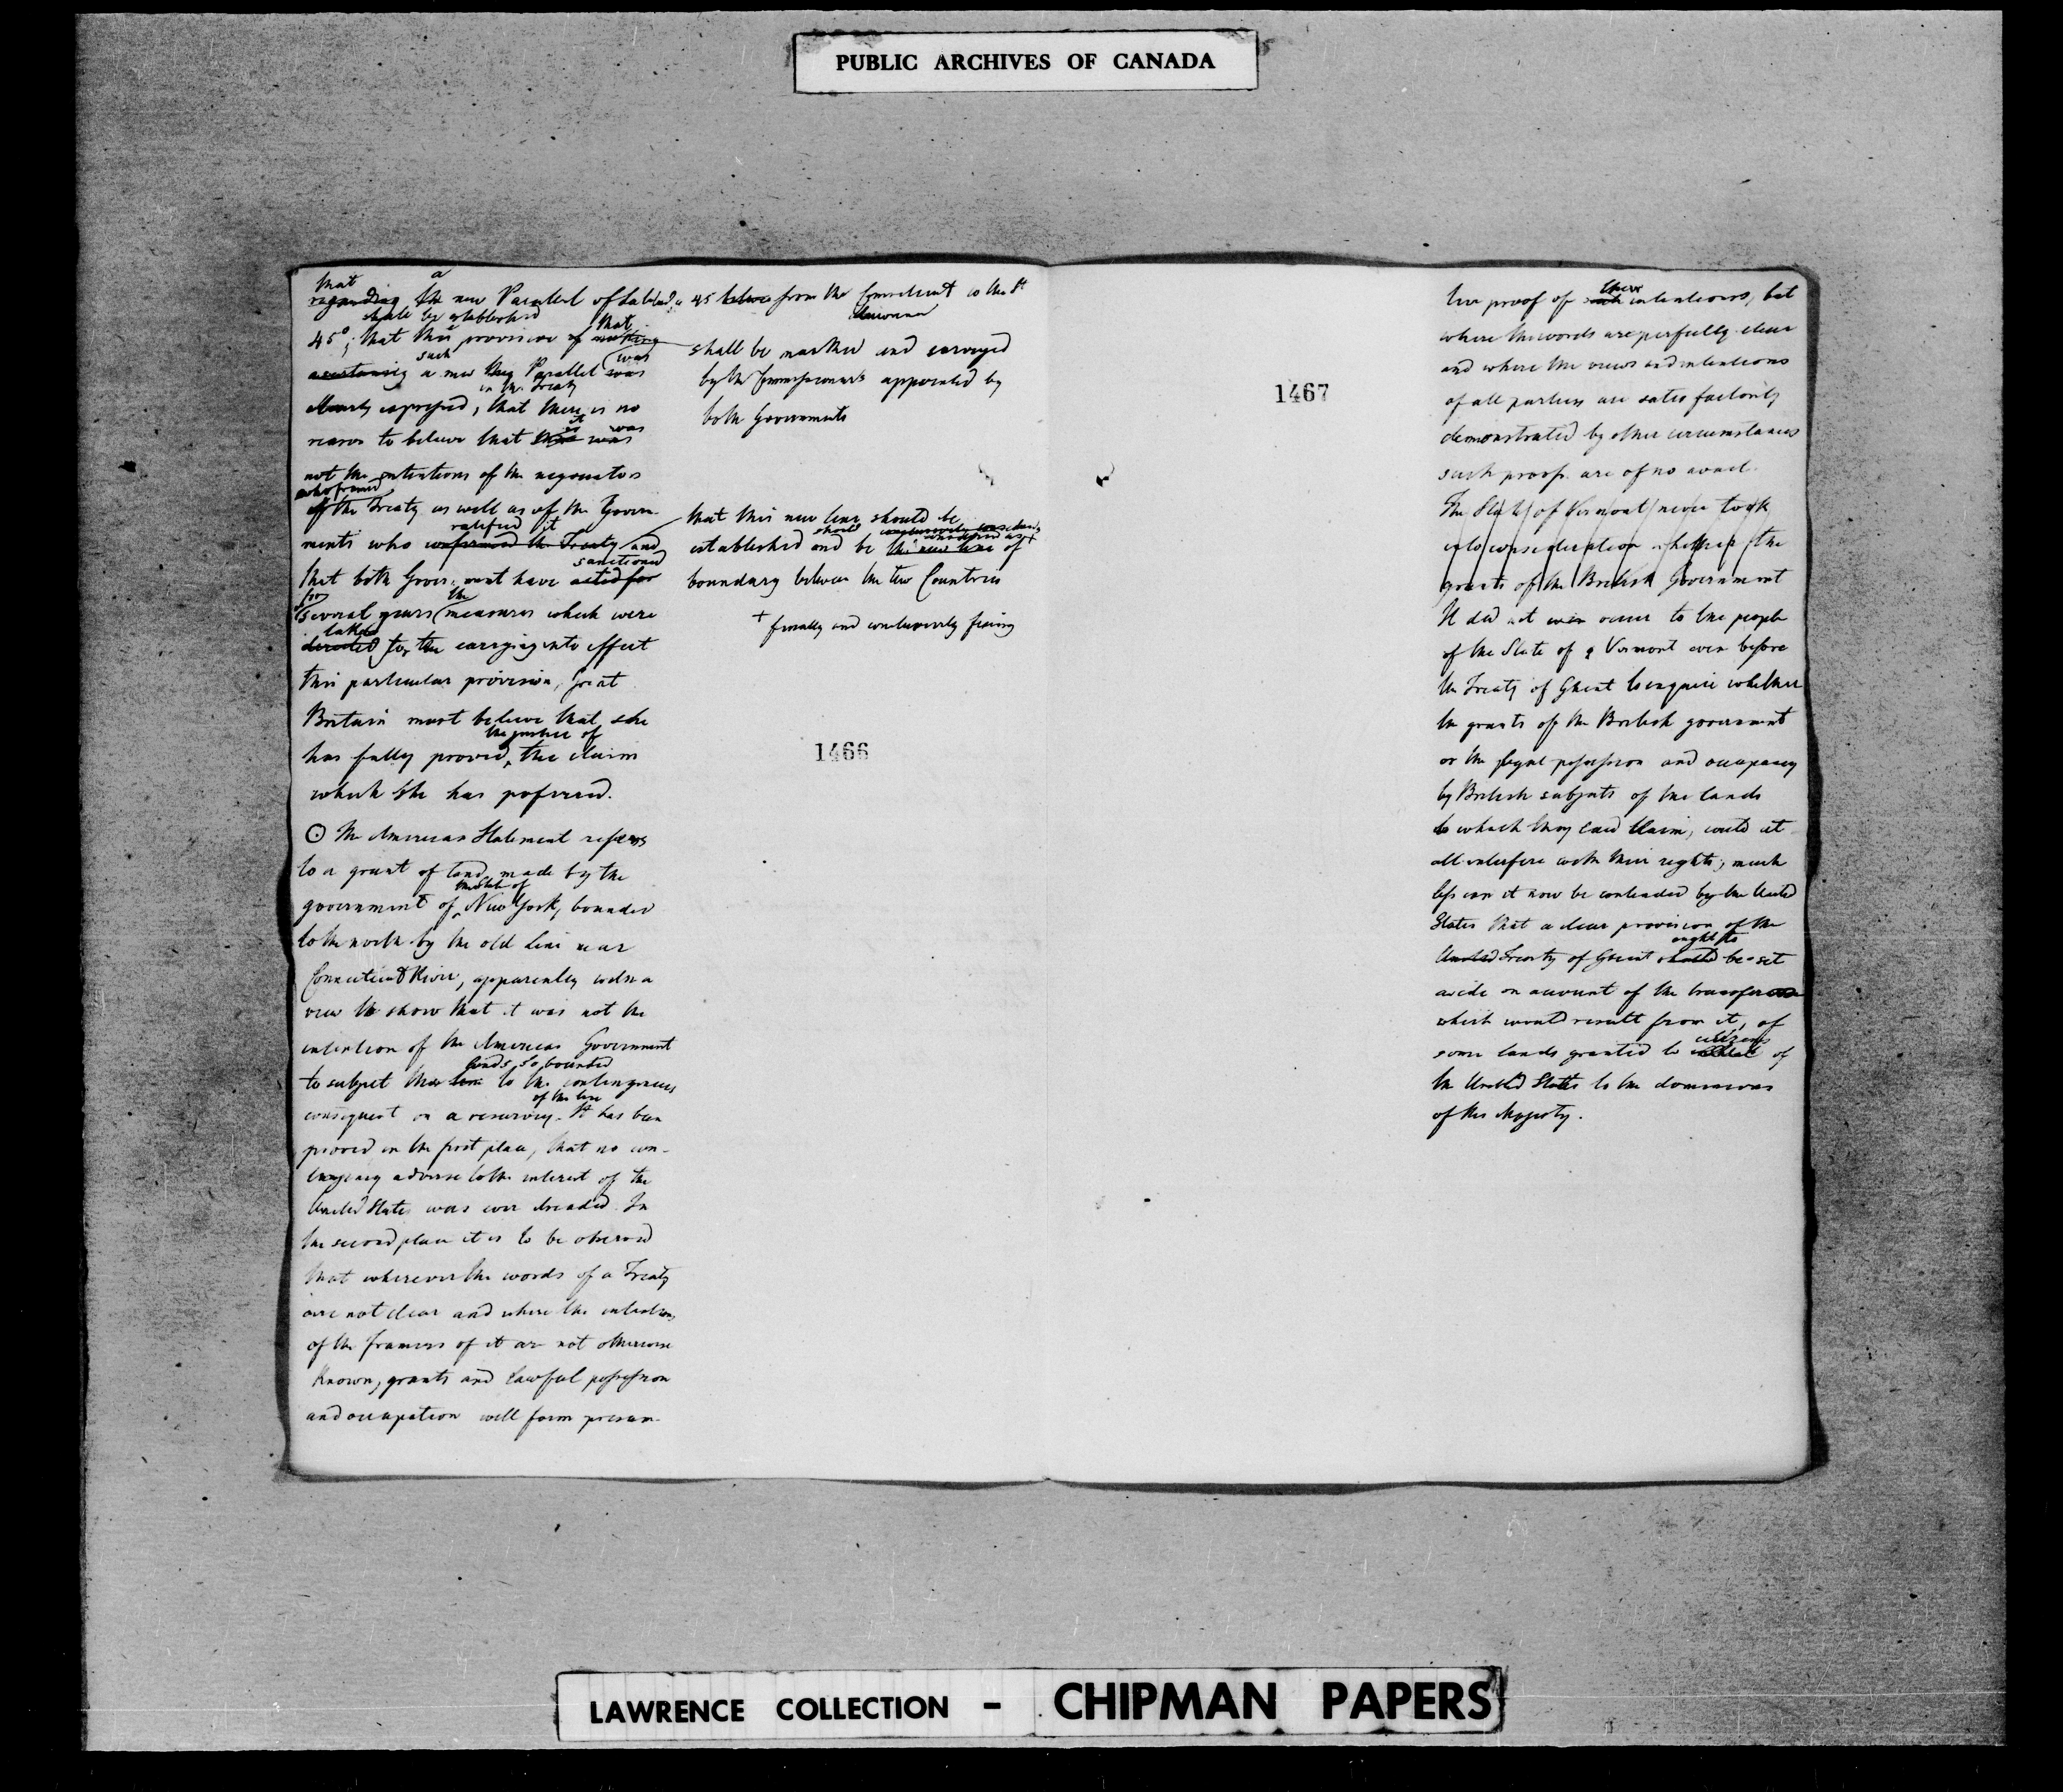 PUBLIC ARCHIVES OF CANADA
that a
regarding the new Parallel of Latitude
shall be established
45°; that this provision of that making
such was
ascertaining a new Parallel was
in the Treaty
clearly expressed, that there is no
it was
reason to believe that was
not the intentions of the negociators
who framed
of the Treaty as well as of the Govern-
ratified it
ments who confirmed the Treaty and
sanctioned
that both Government have acted for
for the
several years measures which were
taken
directed for the carrying into effect
this particular provision, Great
Britain must believe that she
the justice of
has fully proved, the claim
which she has preferred.
⊙ The American Statement refers
to a grant of land made by the
the State of
government of New York, bounded
to the north by the old Line near
Connecticut River, apparently with a
view to show that it was not the
intention of the American Government
lands so bounded
to subject the line to the contingencies
of the line
consequent on a resurvey. It has been
proved in the first place, that no con-
tingency adverse to the interest of the
United States was ever dreaded. In
the second place it is to be observed
that wherever the words of a Treaty
are not clear and where the intentions
of the framers of it are not otherwise
known, grants and lawful possession
and occupation will form presum-
45 from the Connecticut to the St
Lawrence
shall be marked and surveyed
by the Commissioners appointed by
both Governments
that this new line should be
should conclusively considered as +
established and be the new line of
boundary between the two Countries
+ finally and conclusively fixing
1466
1467
tive proof of such these intentions, but
where the words are perfectly clear
and where the views and intentions
of all parties are satisfactorily
demonstrated by other circumstances
such proofs are of no avail.
The State of Vermont never took
into consideration whether the
grants of the British Government
It did not even occur to the people
of the State of Vermont even before
the Treaty of Ghent to enquire whether
the grants of the British government
or the legal possession and occupancy
by British subjects of the lands
to which they laid Claim, could at
all interfere with their rights; much
less can it now be contended by the United
States that a clear provision of the
ought to
United Treaty of Ghent should be set
aside on account of the transfer
which would result from it, of
citizens
some lands granted to of
the United States to the dominions
of His Majesty.
LAWRENCE COLLECTION - CHIPMAN PAPERS